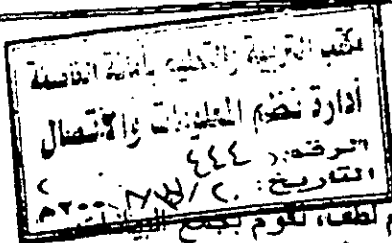 مكتب التربية والتعليم بأمانة العاصمة
أدارة نظم المعلومات والاتصال
الرقم: ٤٤٤
التاريخ: ٢٠٠ م
لطفا، نقوم بجمع البيانات